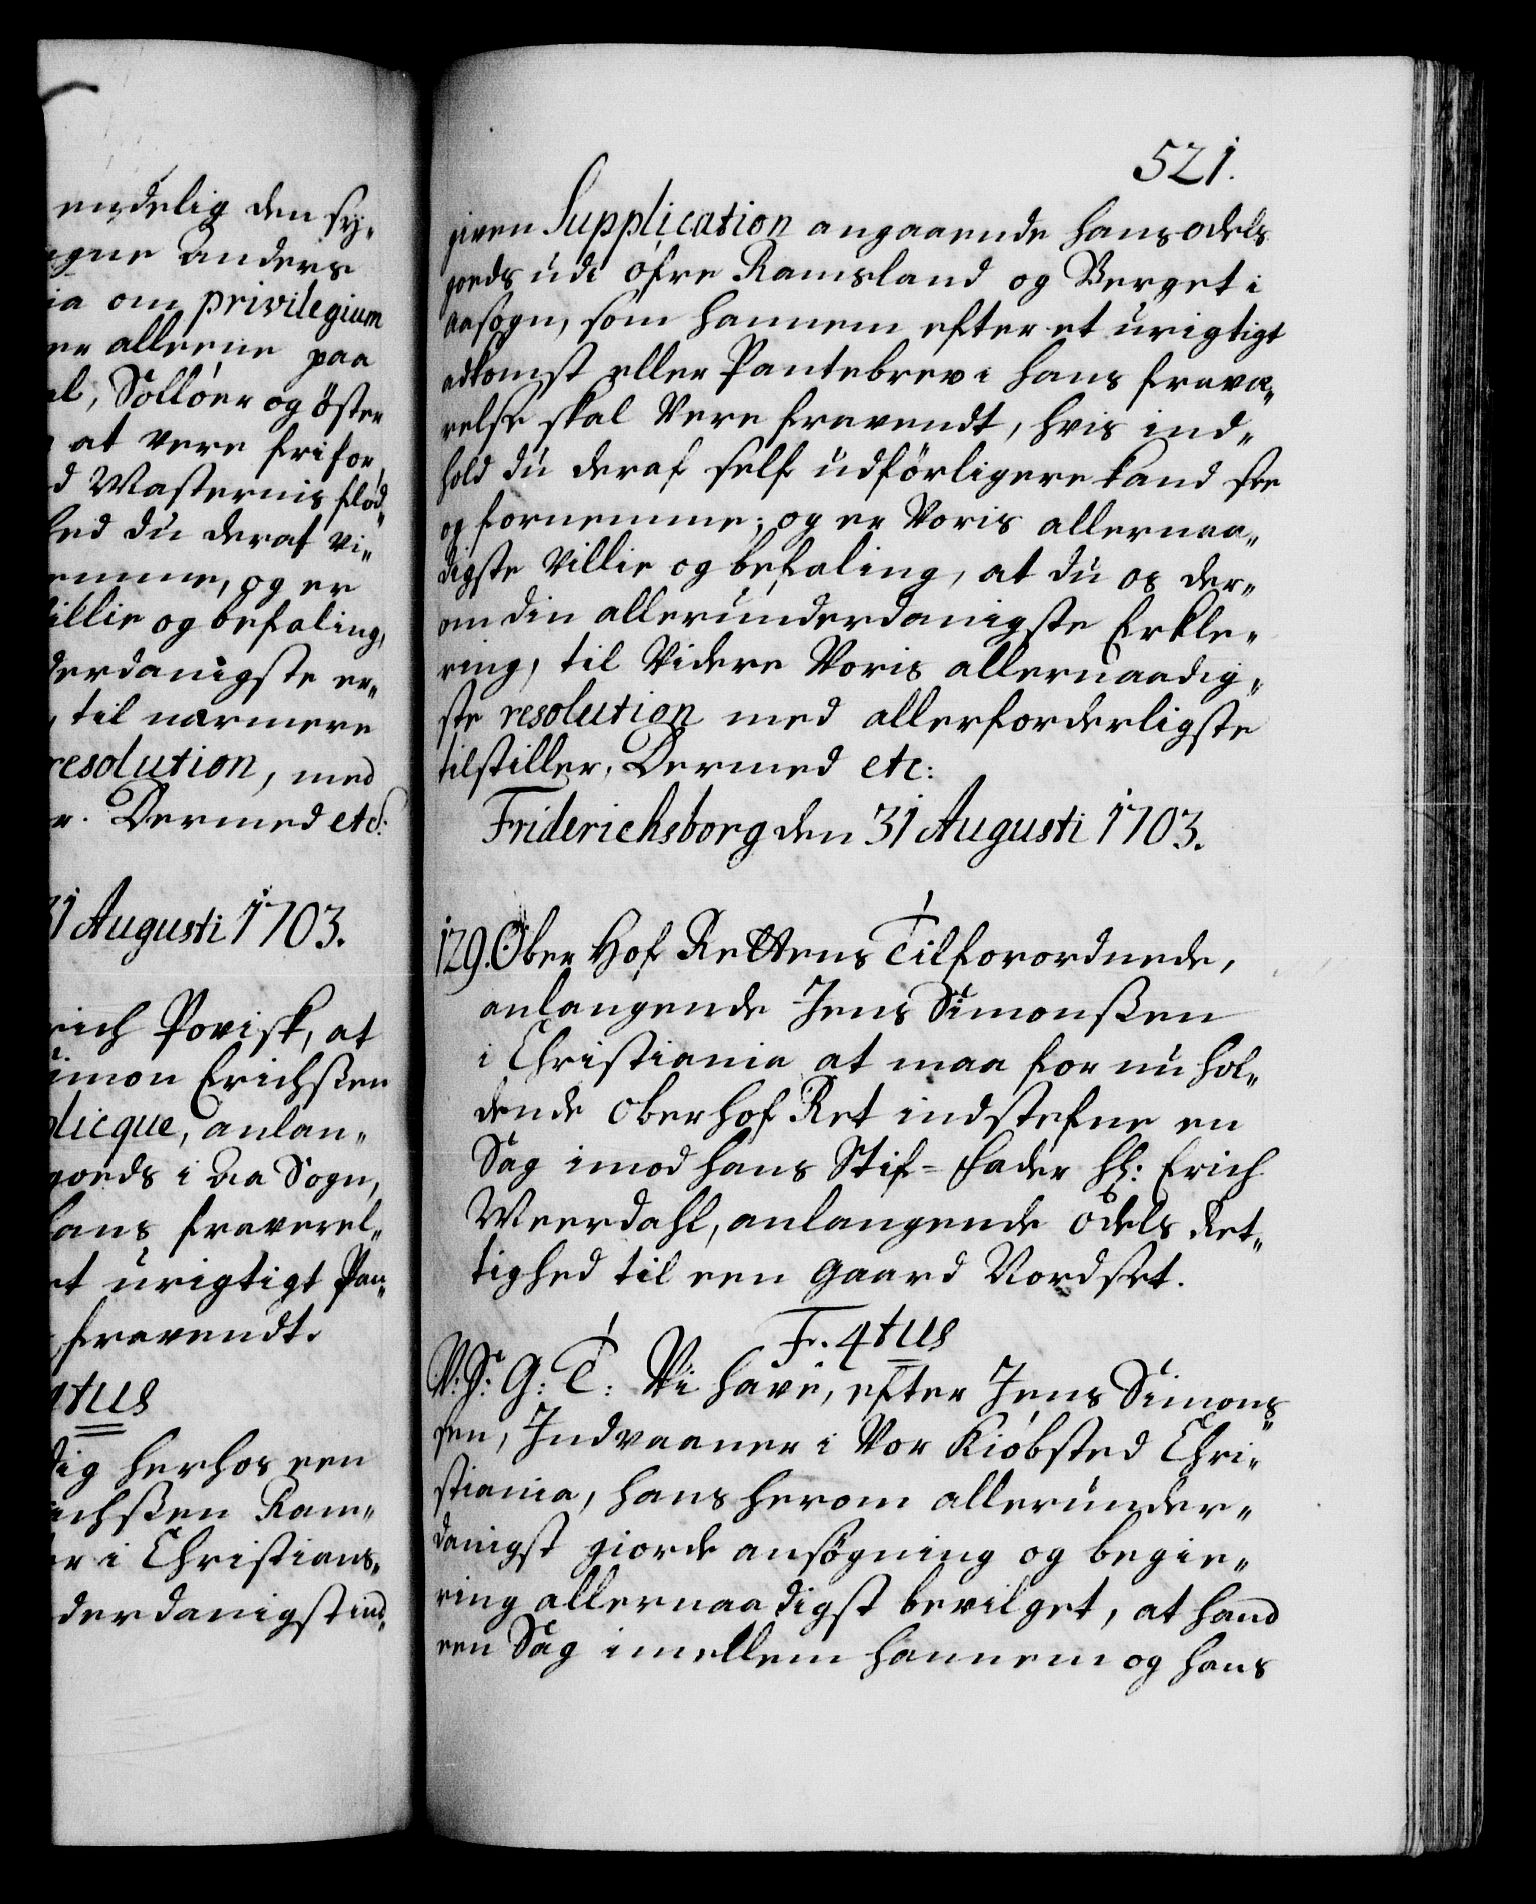 endelig den sy-
agne Anders
ia om privilegium
er alleene paa
el, Sollöer og öster
at vere fri for
d Masternis flöd-
hed du deraf vi-
emme, og er
illie og befaling,
derdanigste er-
til nærmere
resolution, med
r. Dermed etc:
31 Augusti 1703.
rich Povisk, at
imon Erichssen
plicque, anlan-
goeds i Aa Sogn,
hans fraverel-
et urigtigt Pan-
fravendt.
4tus
dig herhos een
ichssen Ram-
er i Christians-
derdanigst ind-
521.
given Supplication angaaende hans odels
goeds udi öfre Ramsland og Berget i
Aasogn, som hannem efter et urigtigt
adkomst eller Pantebrev i hans fravæ-
relse skal Vere fravendt, hvis ind-
hold du deraf self udförligere kand see
og fornemme; og er Voris allernaa-
digste Villie og befaling, at du os der-
om din allerunderdanigste Erkle-
ring, til Videre Voris allernaadig-
ste resolution med allerforderligste
tilstiller, Dermed etc:
Friderichsborg den 31 Augusti 1703.
129. Ober Hof Rettens Tilforordnede,
anlangende Jens Simonssen
i Christiania at maa for nu hol-
dende Oberhof Ret indstefne en
Sag imod hans Stif-fader Hr: Erich
Weerdahl, anlangende odels Ret-
tighed til een Gaard Nordset.
F. 4tus
V: S: G: T: Vi have, efter Jens Simons-
sen, Indvaaner i Vor Kiöbsted Chri-
stiania, hans herom allerunder-
danigst giorde ansögning og begie-
ring allernaadigst bevilget, at hand
een Sag imellem hannem og hans